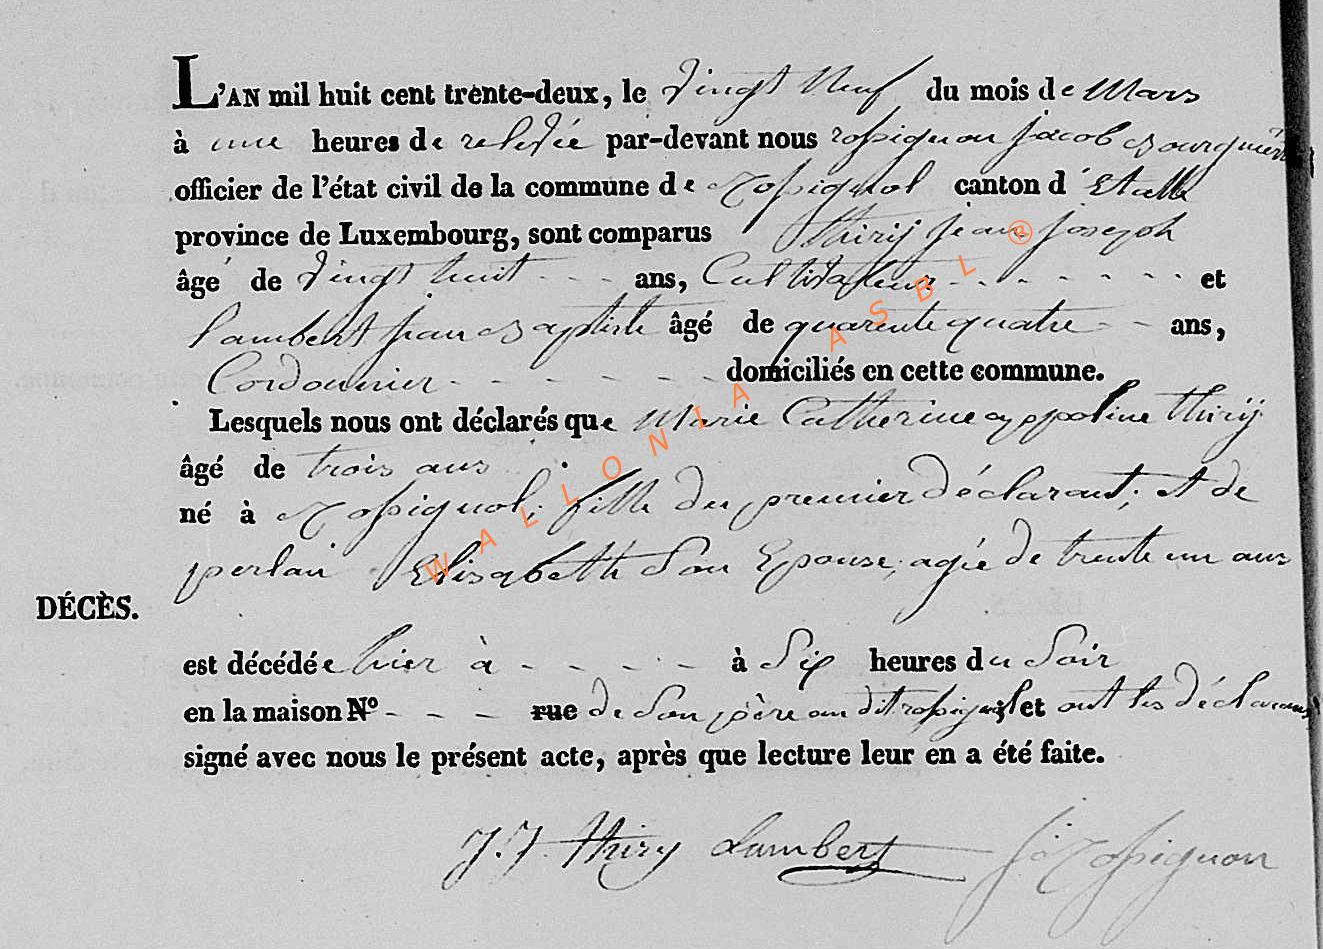 L'AN mil huit cent trente-deux, le vingt neuf du mois de Mars
à une heures de relevée par-devant nous rossignon jacob Bourguemêtre
officier de l'état civil de la commune de rossignol canton d'Etalle
province de Luxembourg, sont comparus thirij jean joseph
âgé de vingt huit - - - ans, Cultivateur - - - - - - - et
lambert jean Baptiste âgé de quarente quatre - - ans,
Cordonnier - - - - - - - domiciliés en cette commune.
Lesquels nous ont déclarés que Marie Catherine appoline thirij
âgé de trois ans
né à rossignol, fille du premier déclarant, et de
perlau Elisabeth Son Epouse, agée de trente un ans
DÉCÈS.
est décédée hier à - - - - - à Six heures du Soir
en la maison N° - - - rue de Son père au dit rossignol et ont les déclarans
signé avec nous le présent acte, après que lecture leur en a été faite.
J. J. thiry Lambert j rossignon
WALLONIA ASBL ®